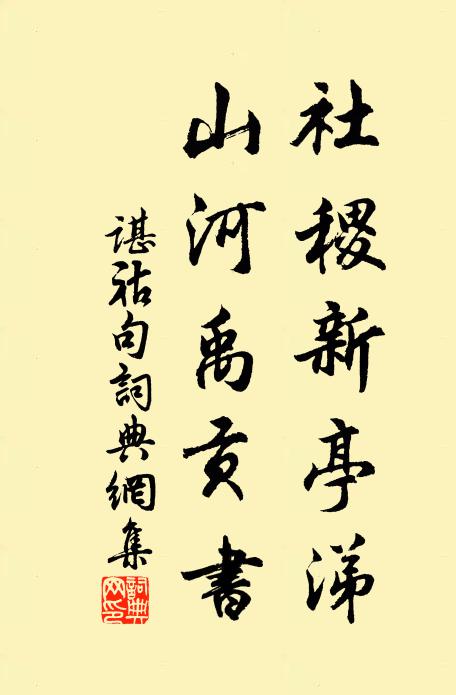 社稷新亭涕
山河禹贡書
谌祜句詞典網集
詞典網印